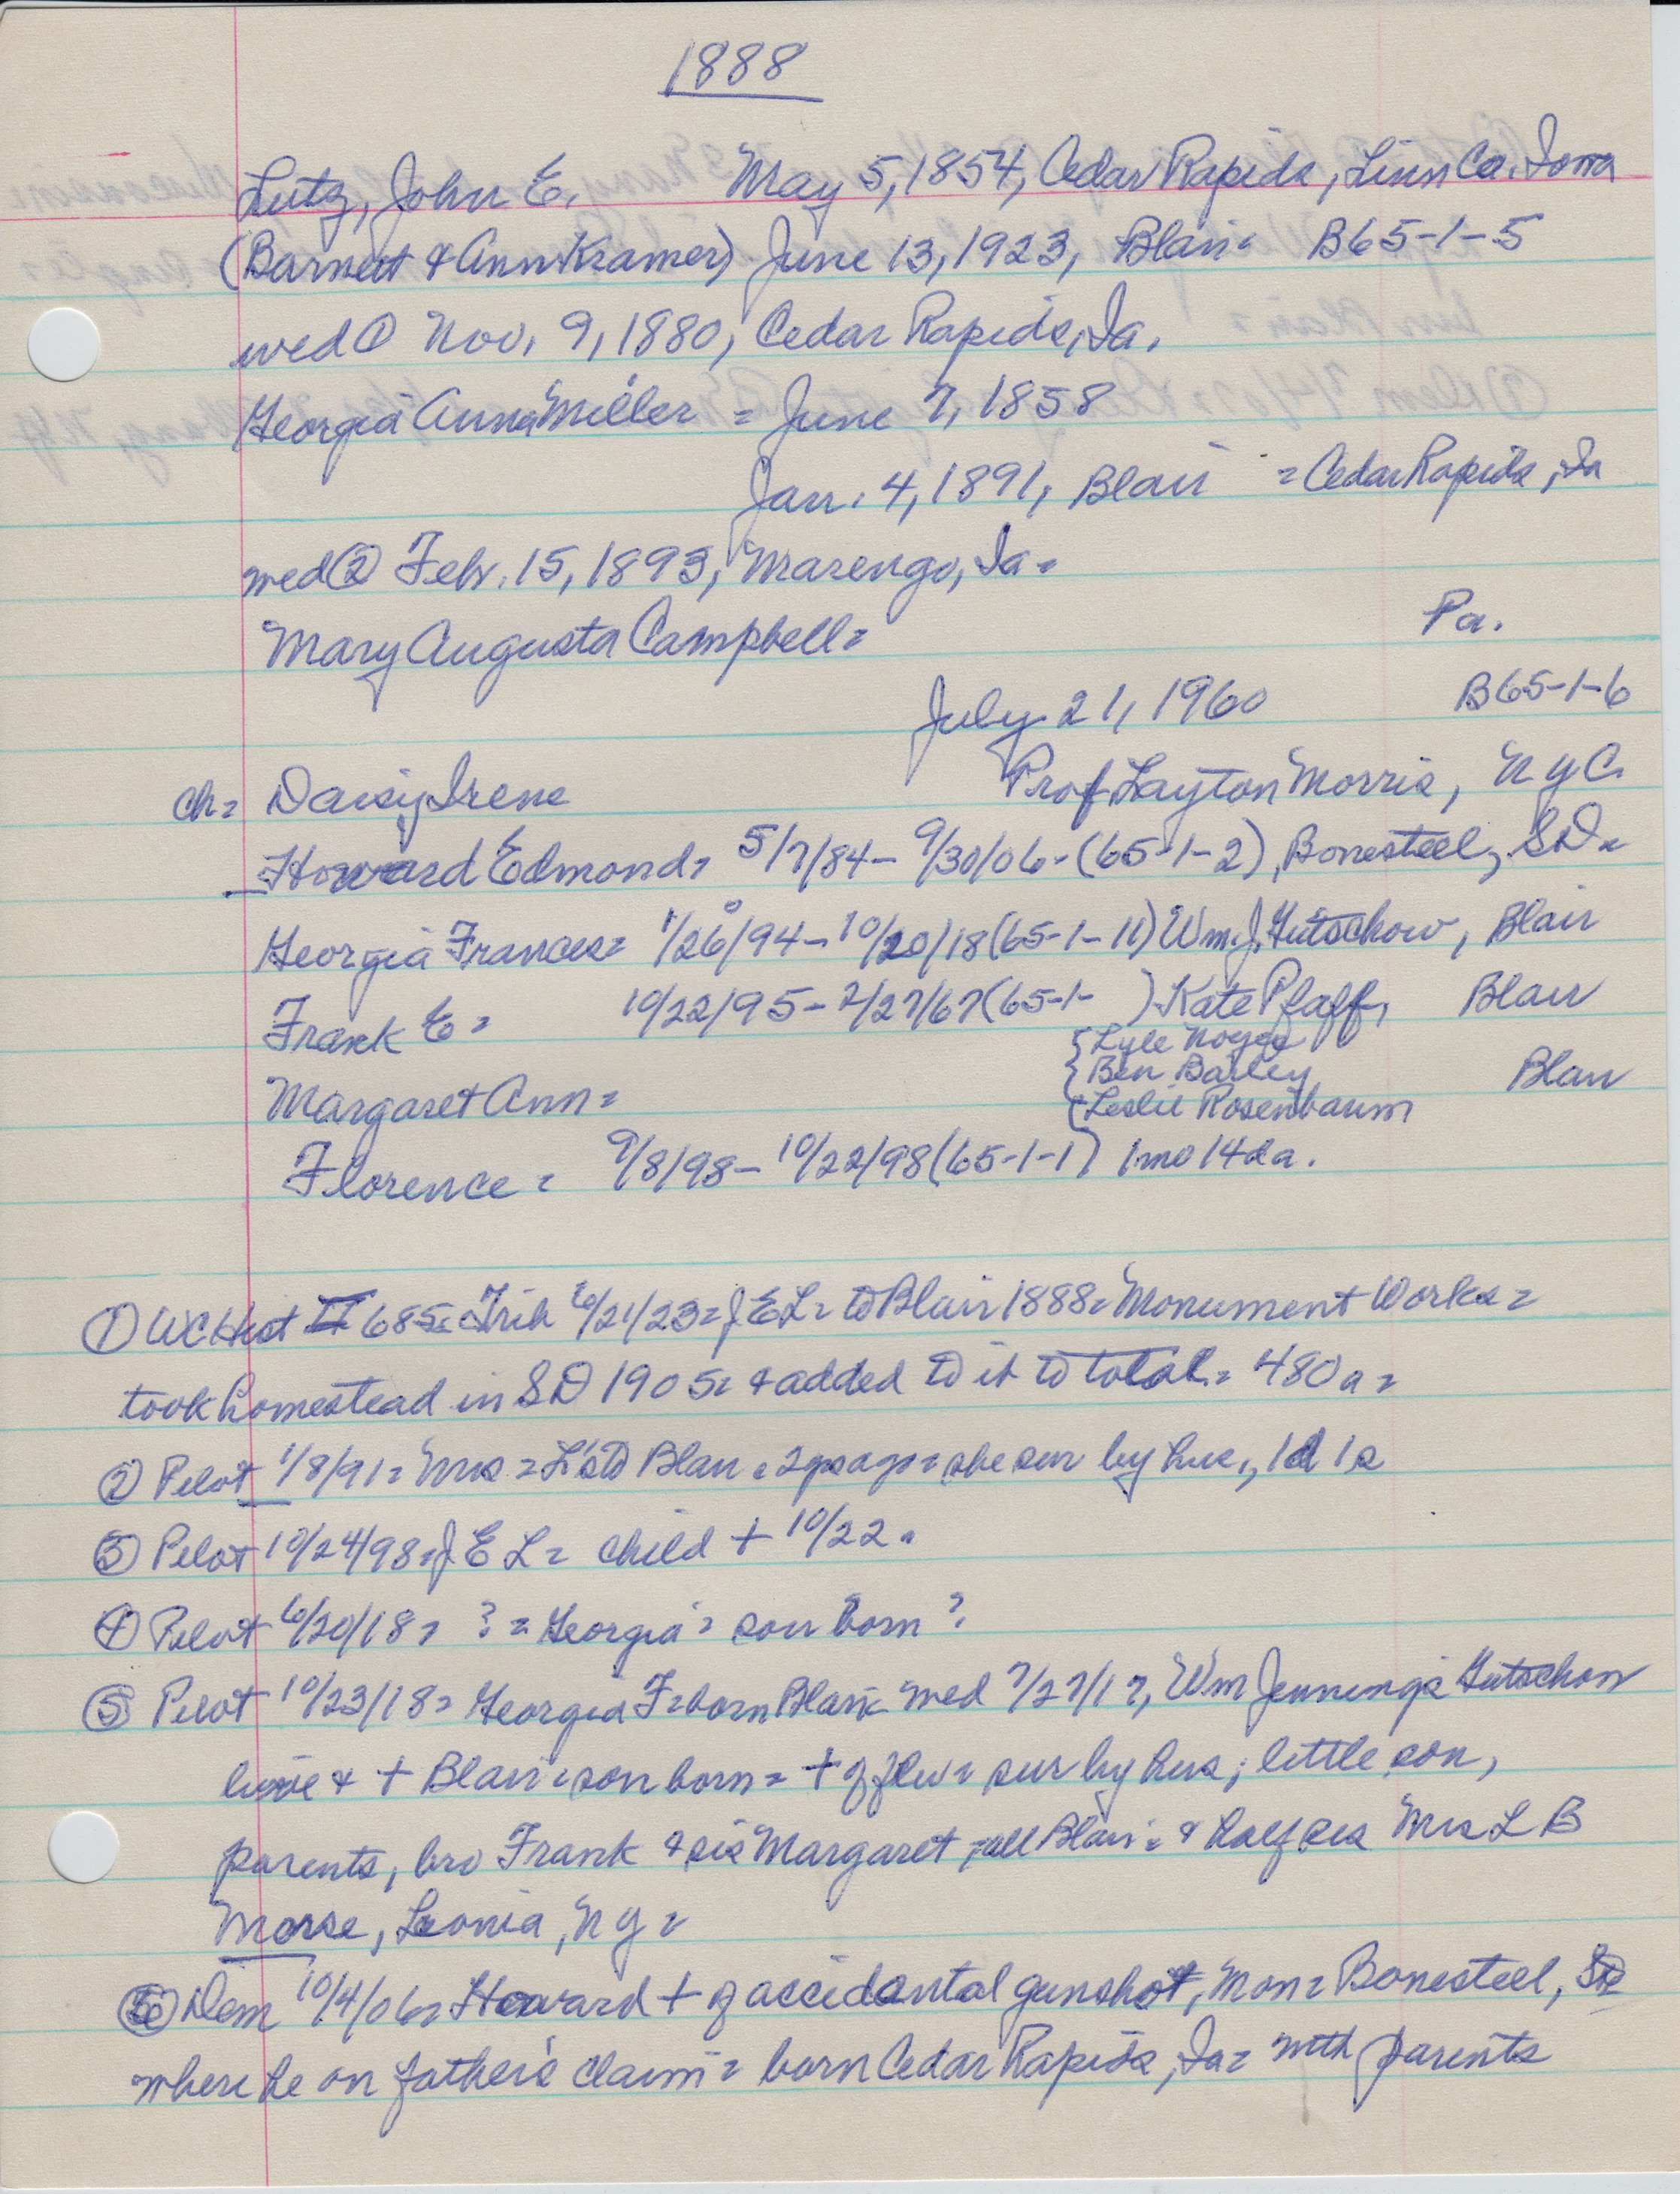 1888
Lutz, John E. May 5, 1854, Cedar Rapids, Linn Co. Iowa
(Barnett & Ann Kramer) June 13, 1923, Blair = B65-1-5
wed ① Nov. 9, 1880, Cedar Rapids, Ia.
Georgia Anna Miller = June 7, 1858
Jan. 4, 1891, Blair = Cedar Rapids, Ia
wed ② Febr. 15, 1893, Marengo, Ia =
Mary Augusta Campbell = Pa.
July 21, 1960 B65-1-6
ch = Daisy Irene Prof Layton Morris, NYC.
Howard Edmond = 5/7/84 - 9/30/06 - (65-1-2), Bonesteel, SD =
Georgia Frances = 1/26/94 - 10/20/18 (65-1-11) Wm. J. Gutschow, Blair
Frank E = 10/22/95 - 2/27/67 (65-1- ) Kate Pfaff, Blair
{ Lyle Noyes
Margaret Ann = { Ben Bailey Blair
{ Leslie Rosenbaum
Florence = 9/8/98 - 10/22/98 (65-1-1) 1 mo 14 da.
① WC Hist II 685 = Trib 6/21/23 = J E L = to Blair 1888 = Monument Works =
took homestead in SD 1905 = & added to it to total = 480 a =
② Pilot 1/8/91 = Mrs = L's to Blair = 2 yrs ago = she sur by hus., 1d 1s
③ Pilot 10/24/98 = J E L = child + 10/22 =
④ Pilot 6/20/18 = ? = Georgia = son born ?
⑤ Pilot 10/23/18 = Georgia F = born Blair wed 7/27/17, Wm Jennings Gutschow
live & + Blair = son born = + of flu = sur by hus; little son,
parents, bro Frank & sis Margaret, all Blair = & half sis Mrs L B
Morse, Leonia, NY =
⑥ Dem 10/4/06 = Howard + of accidental gunshot, Mon = Bonesteel, SD
where he on father's claim = born Cedar Rapids, Ia = with parents